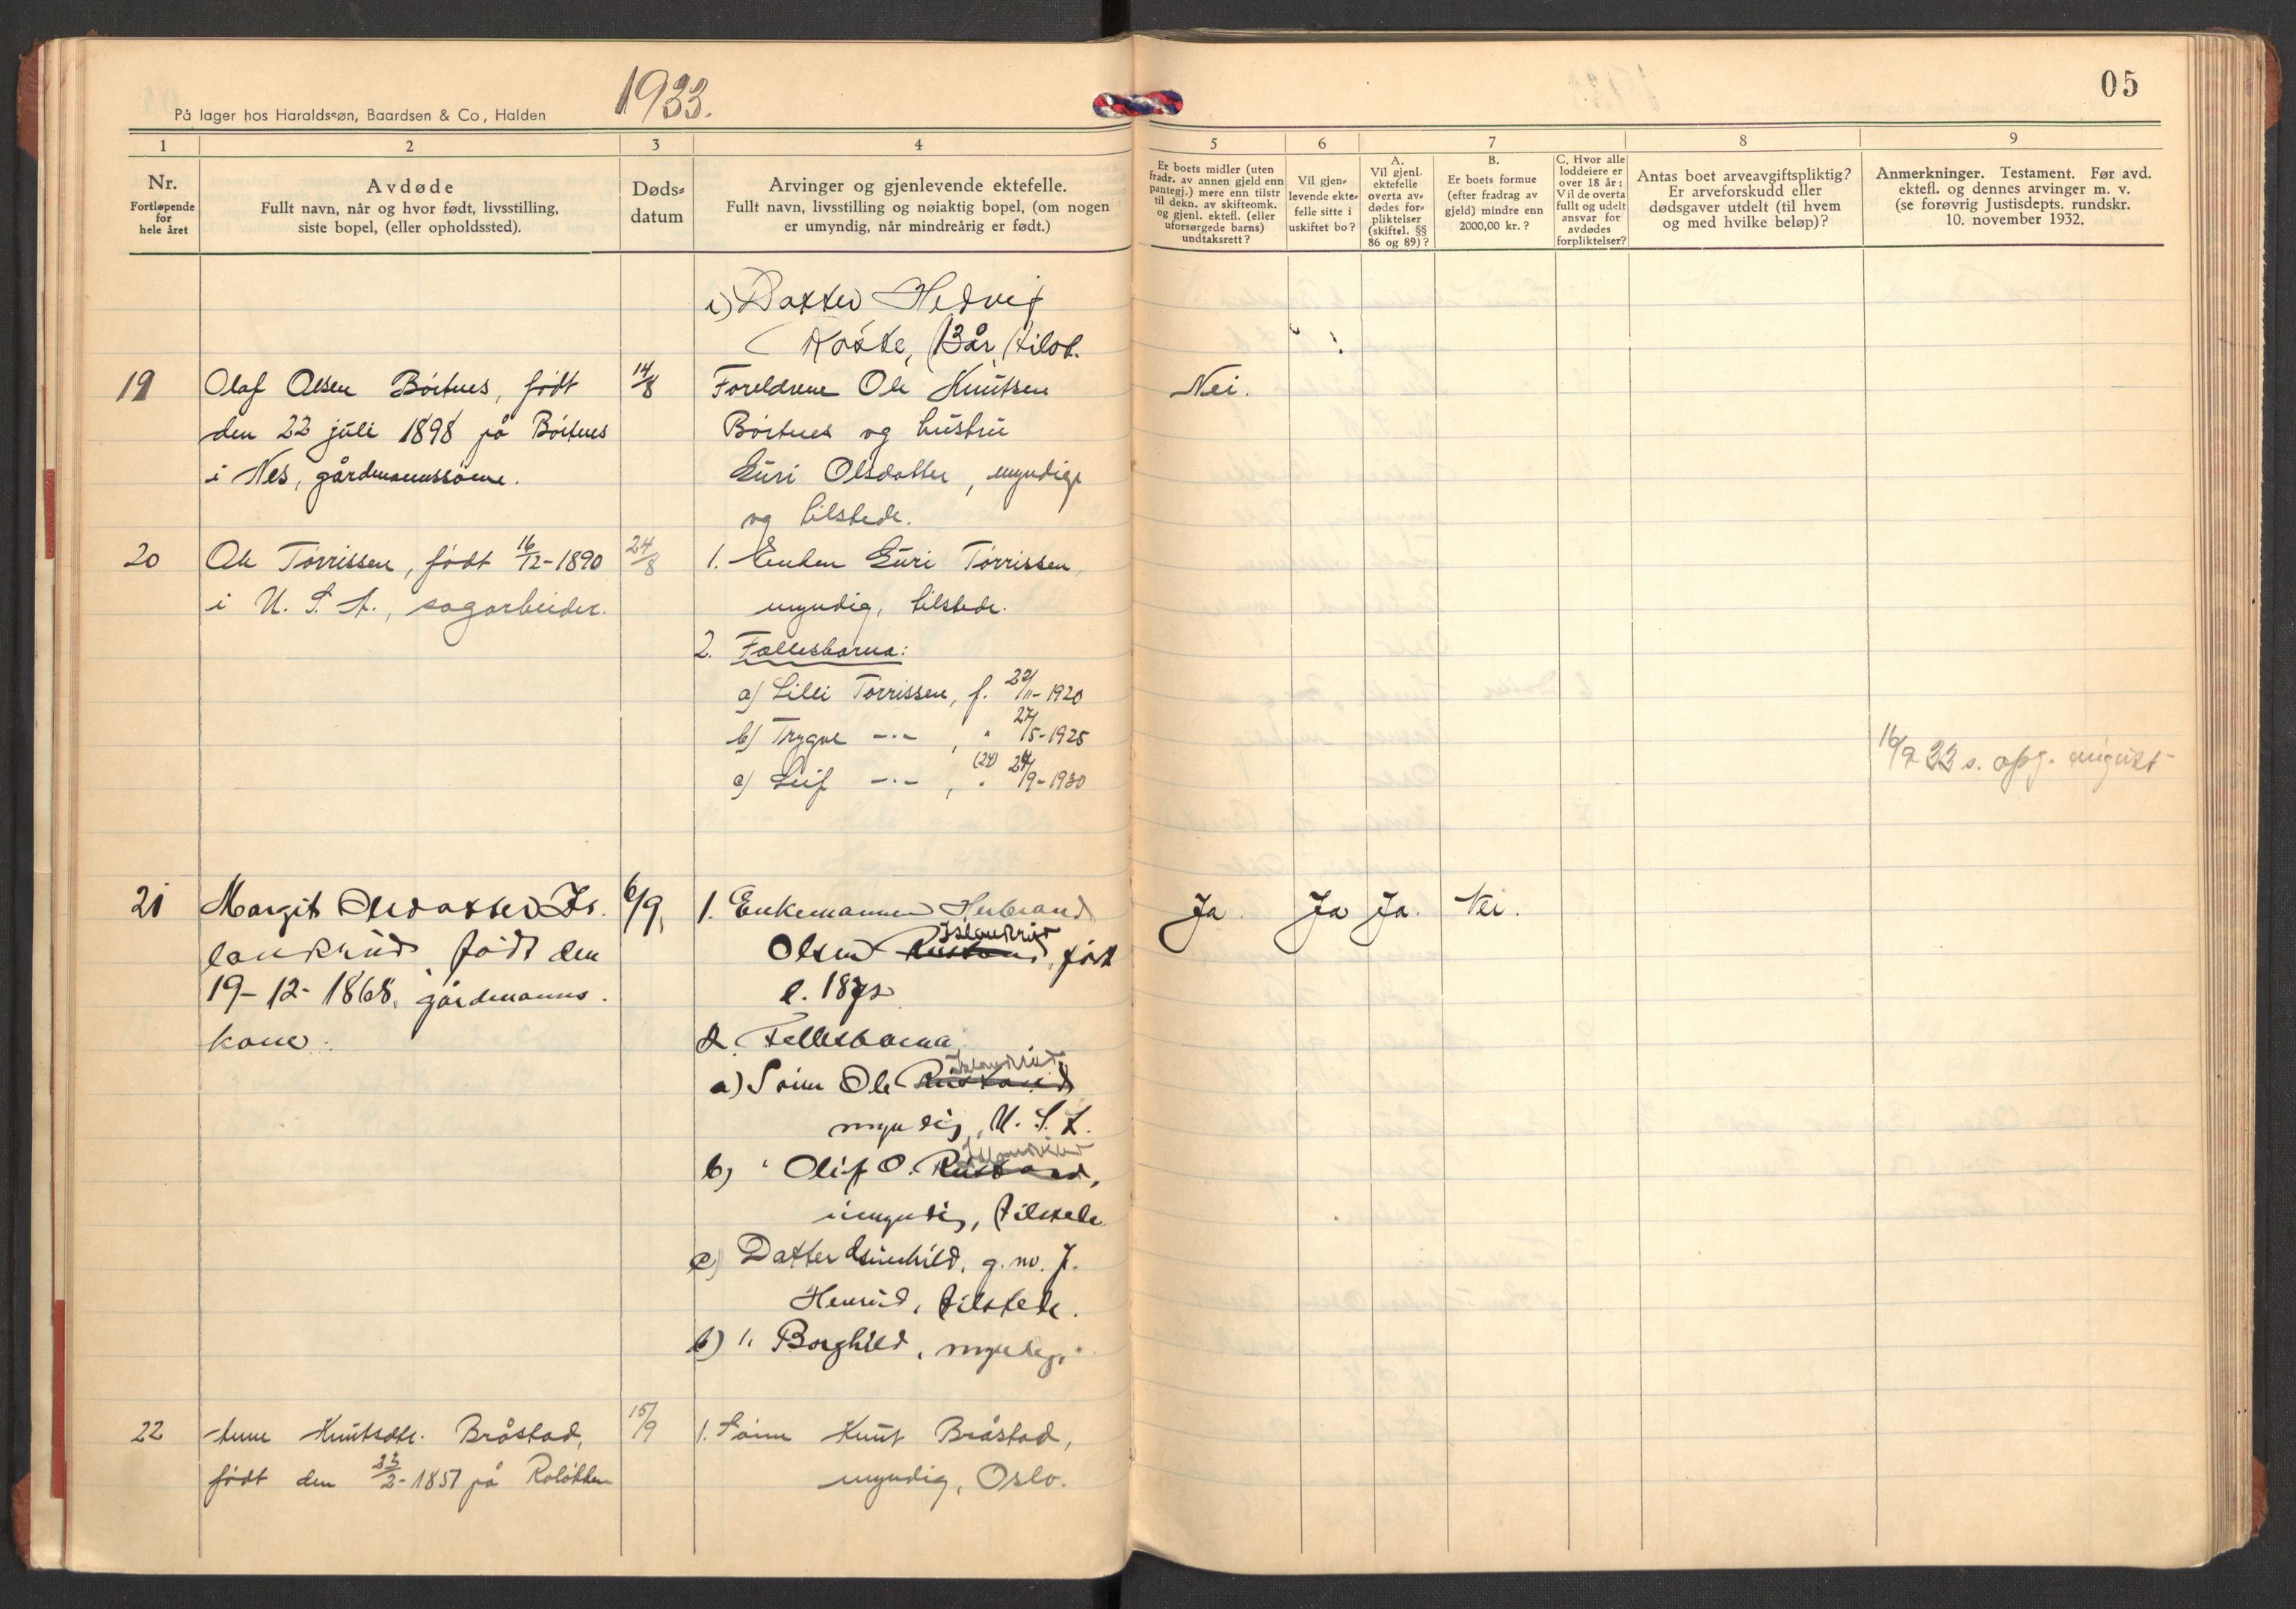 På lager hos Haraldssøn, Baardsen & Co, Halden
1933.
05
1 2 3 4 5 6 7 8 9
Nr.
Fortløpende
for
hele året
Avdøde
Fullt navn, når og hvor født, livsstilling,
siste bopel, (eller opholdssted).
Døds-
datum
Arvinger og gjenlevende ektefelle.
Fullt navn, livsstilling og nøiaktig bopel, (om nogen
er umyndig, når mindreårig er født.)
Er boets midler (uten
fradr. av annen gjeld enn
pantegj.) mere enn tilstr
til dekn. av skifteomk.
og gjenl. ektefl. (eller
uforsørgede barns)
undtaksrett?
Vil gjen-
levende ekte-
felle sitte i
uskiftet bo?
A.
Vil gjenl.
ektefelle
overta av-
dødes for-
pliktelser
(skiftel. §§
86 og 89)?
B.
Er boets formue
(efter fradrag av
gjeld) mindre enn
2000,00 kr.?
C. Hvor alle
loddeiere er
over 18 år:
Vil de overta
fullt og udelt
ansvar for
avdødes
forpliktelser?
Antas boet arveavgiftspliktig?
Er arveforskudd eller
dødsgaver utdelt (til hvem
og med hvilke beløp)?
Anmerkninger. Testament. Før avd.
ektefl. og dennes arvinger m. v.
(se forøvrig Justisdepts. rundskr.
10. november 1932.
i) Datter Hedvig
13 år, tilst.
19 Olaf Olsen Börtnes, født
14/8
Foreldrene Ole Knutsen
Nei.
den 22 juli 1898 på Börtnes
Börtnes og hustru
i Nes, gårdmannssönn.
Guri Olsdatter, myndige
og tilstede.
20 Ole Törrissen, født 16/12-1890
24/8
1. Enken Guri Törrissen,
i U. S. A., sagarbeider.
myndig, tilstede.
2. Fællesbarna:
a) Lilli Törrissen, f. 22/11-1920
b) Trygve -"- , " 27/5-1925
c) Leif -"- , " (24) 24/9-1930
16/9 33 s. opg. august
21 Margit Olsdatter Is-
6/9
1. Enkemannen Herbrand
Ja. Ja Ja. Nei.
landrud, født den
Olsen Rustand Islandrud, født
19-12-1868, gårdmanns-
kone.
2. Fellesbarna
a) Sönn Ole Rustand Islandrud
myndig, U. S. A.
b) " Olif O. Rustand Islandrud,
umyndig, tilstede
c) Datter Gunhild, g. m. J.
Henrud, tilstede.
b) " Borghild, myndig,
22 Anne Knutsdtr. Bråstad,
15/9
1. Sönn Knut Bråstad,
født den 23/2-1857 på Rolökken
myndig, Oslo.